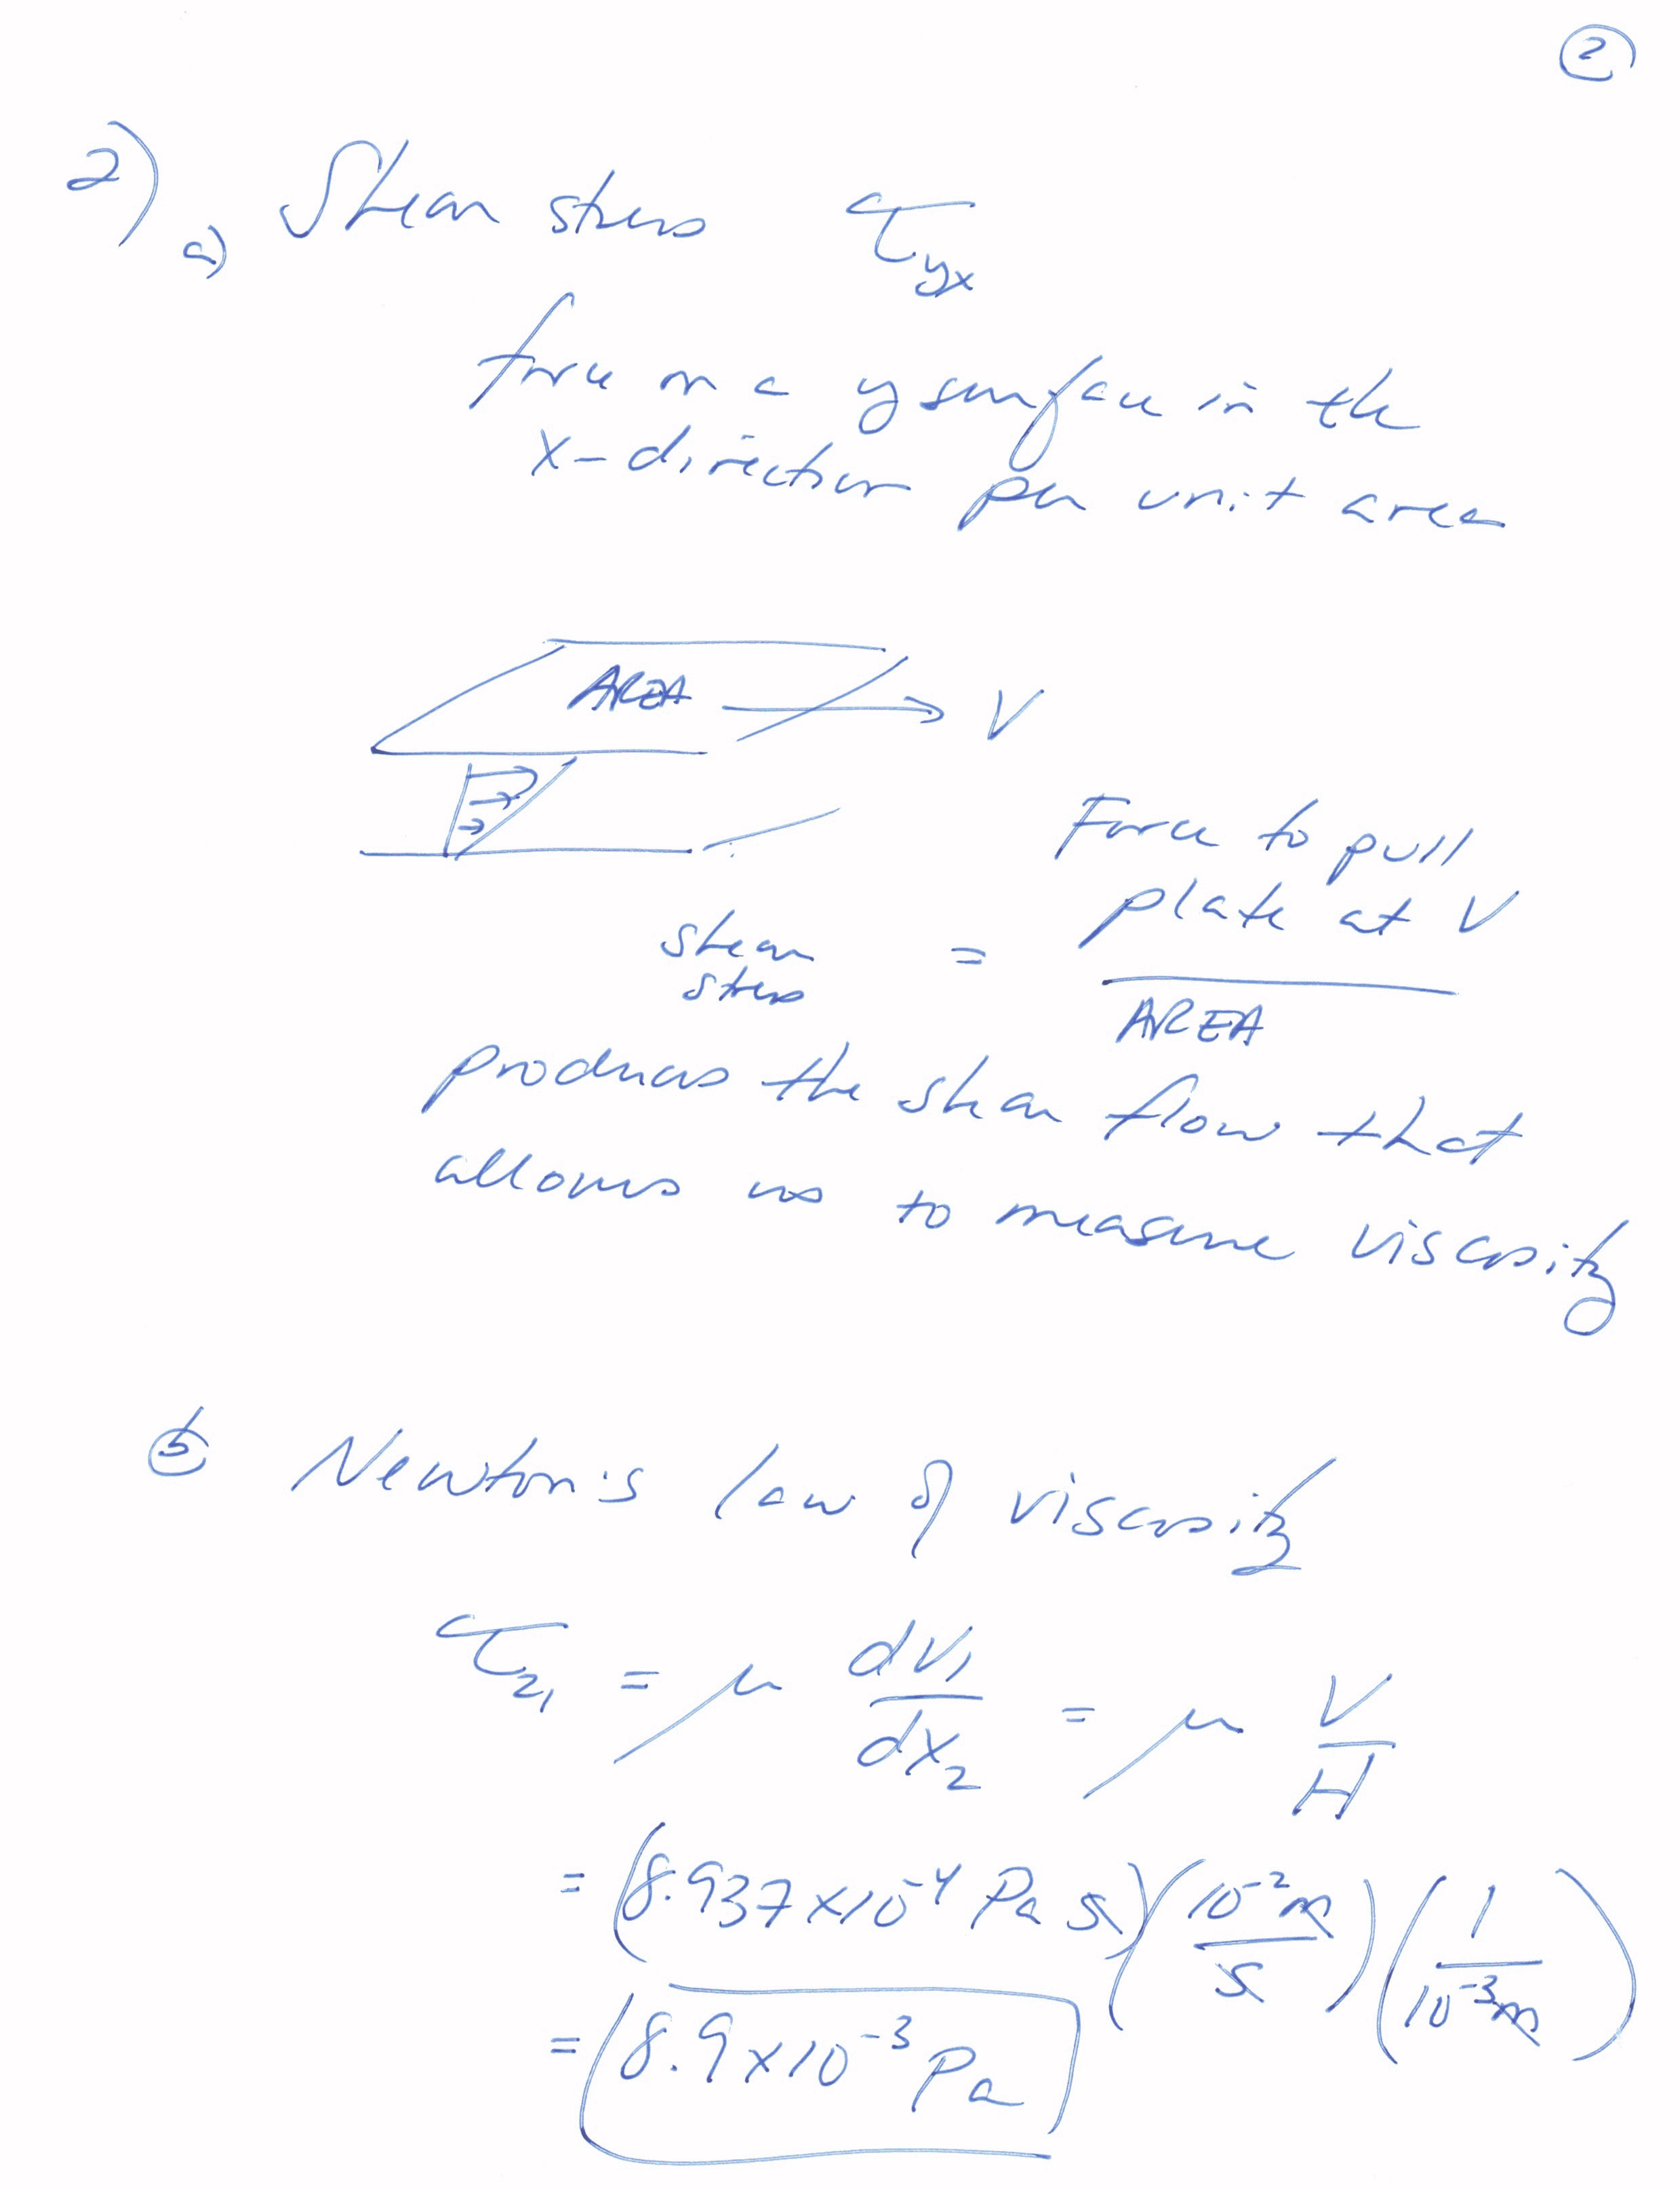 ②
2)
a) Shear stress τ_yx
force on a y surface in the
x-direction per unit area
AREA → V
Force to pull
plate at V
shear =
stress
AREA
produces the shear flow that
allows us to measure viscosity
ⓑ Newton's law of viscosity
τ_21 = μ dv_1/dx_2 = μ V/H
= (8.937 x 10^-4 Pa s)(10^-2 m/s)(1/10^-3 m)
= 8.9 x 10^-3 Pa